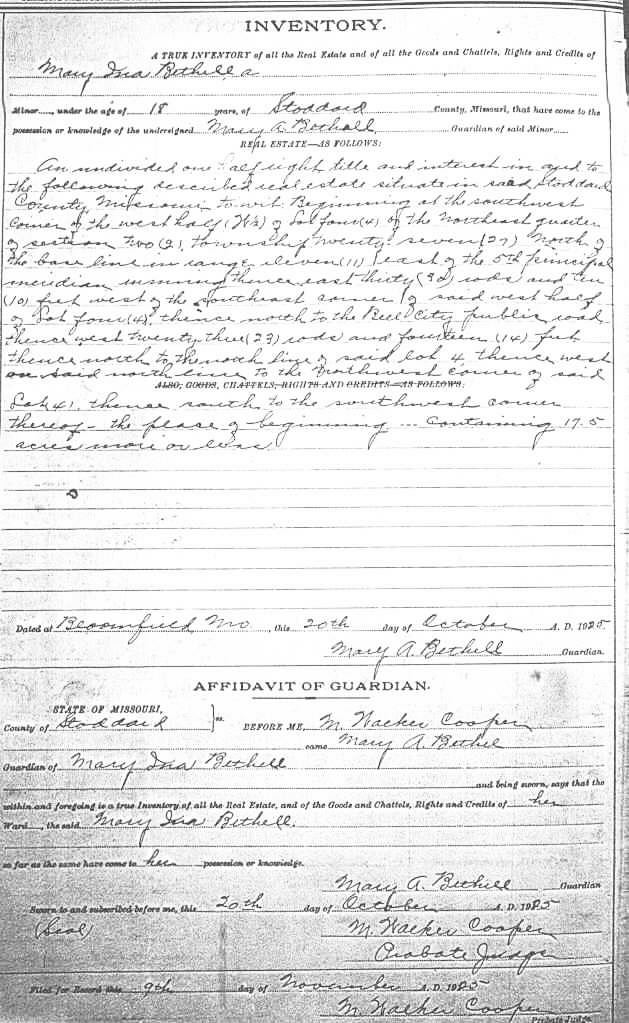 INVENTORY.
A TRUE INVENTORY of all the Real Estate and of all the Goods and Chattels, Rights and Credits of
Mary Ina Bethell a
Minor, under the age of 18 years, of Stoddard County, Missouri, that have come to the
possession or knowledge of the undersigned Mary A. Bethell Guardian of said Minor
REAL ESTATE—AS FOLLOWS:
An undivided one half right title and interest in and to
the following described real estate situate in said Stoddard
County Missouri to wit Beginning at the southwest
corner of the west half (W½) of Lot four (4) of the Northeast quarter
of section Two (2), Township Twenty seven (27) North of
the base line in range eleven (11) east of the 5th principal
meridian running thence east thirty rods and ten
(10) feet west of the southeast corner of said west half
of Lot four (4), thence north to the Bell City public road
thence west twenty three (23) rods and fourteen (14) feet
thence north to the north line of said lot 4 thence west
on said north line to the Northwest corner of said
ALSO, GOODS, CHATTELS, RIGHTS AND CREDITS—AS FOLLOWS:
Lot (4), thence south to the southwest corner
thereof - the place of beginning ... Containing 17.5
acres more or less
Dated at Bloomfield Mo, this 20th day of October A. D. 1925
Mary A. Bethell Guardian.
AFFIDAVIT OF GUARDIAN.
STATE OF MISSOURI,
County of Stoddard } ss. BEFORE ME, M. Walker Cooper
came Mary A. Bethel
Guardian of Mary Ina Bethell
and being sworn, says that the
within and foregoing is a true Inventory of all the Real Estate, and of the Goods and Chattels, Rights and Credits of her
Ward, the said Mary Ina Bethell.
so far as the same have come to her possession or knowledge.
Mary A. Bethell Guardian
Sworn to and subscribed before me, this 20th day of October A. D. 1925
(Seal) M. Walker Cooper
Probate Judge
Filed for Record this 9th day of November A. D. 1925
M. Walker Cooper
Probate Judge.